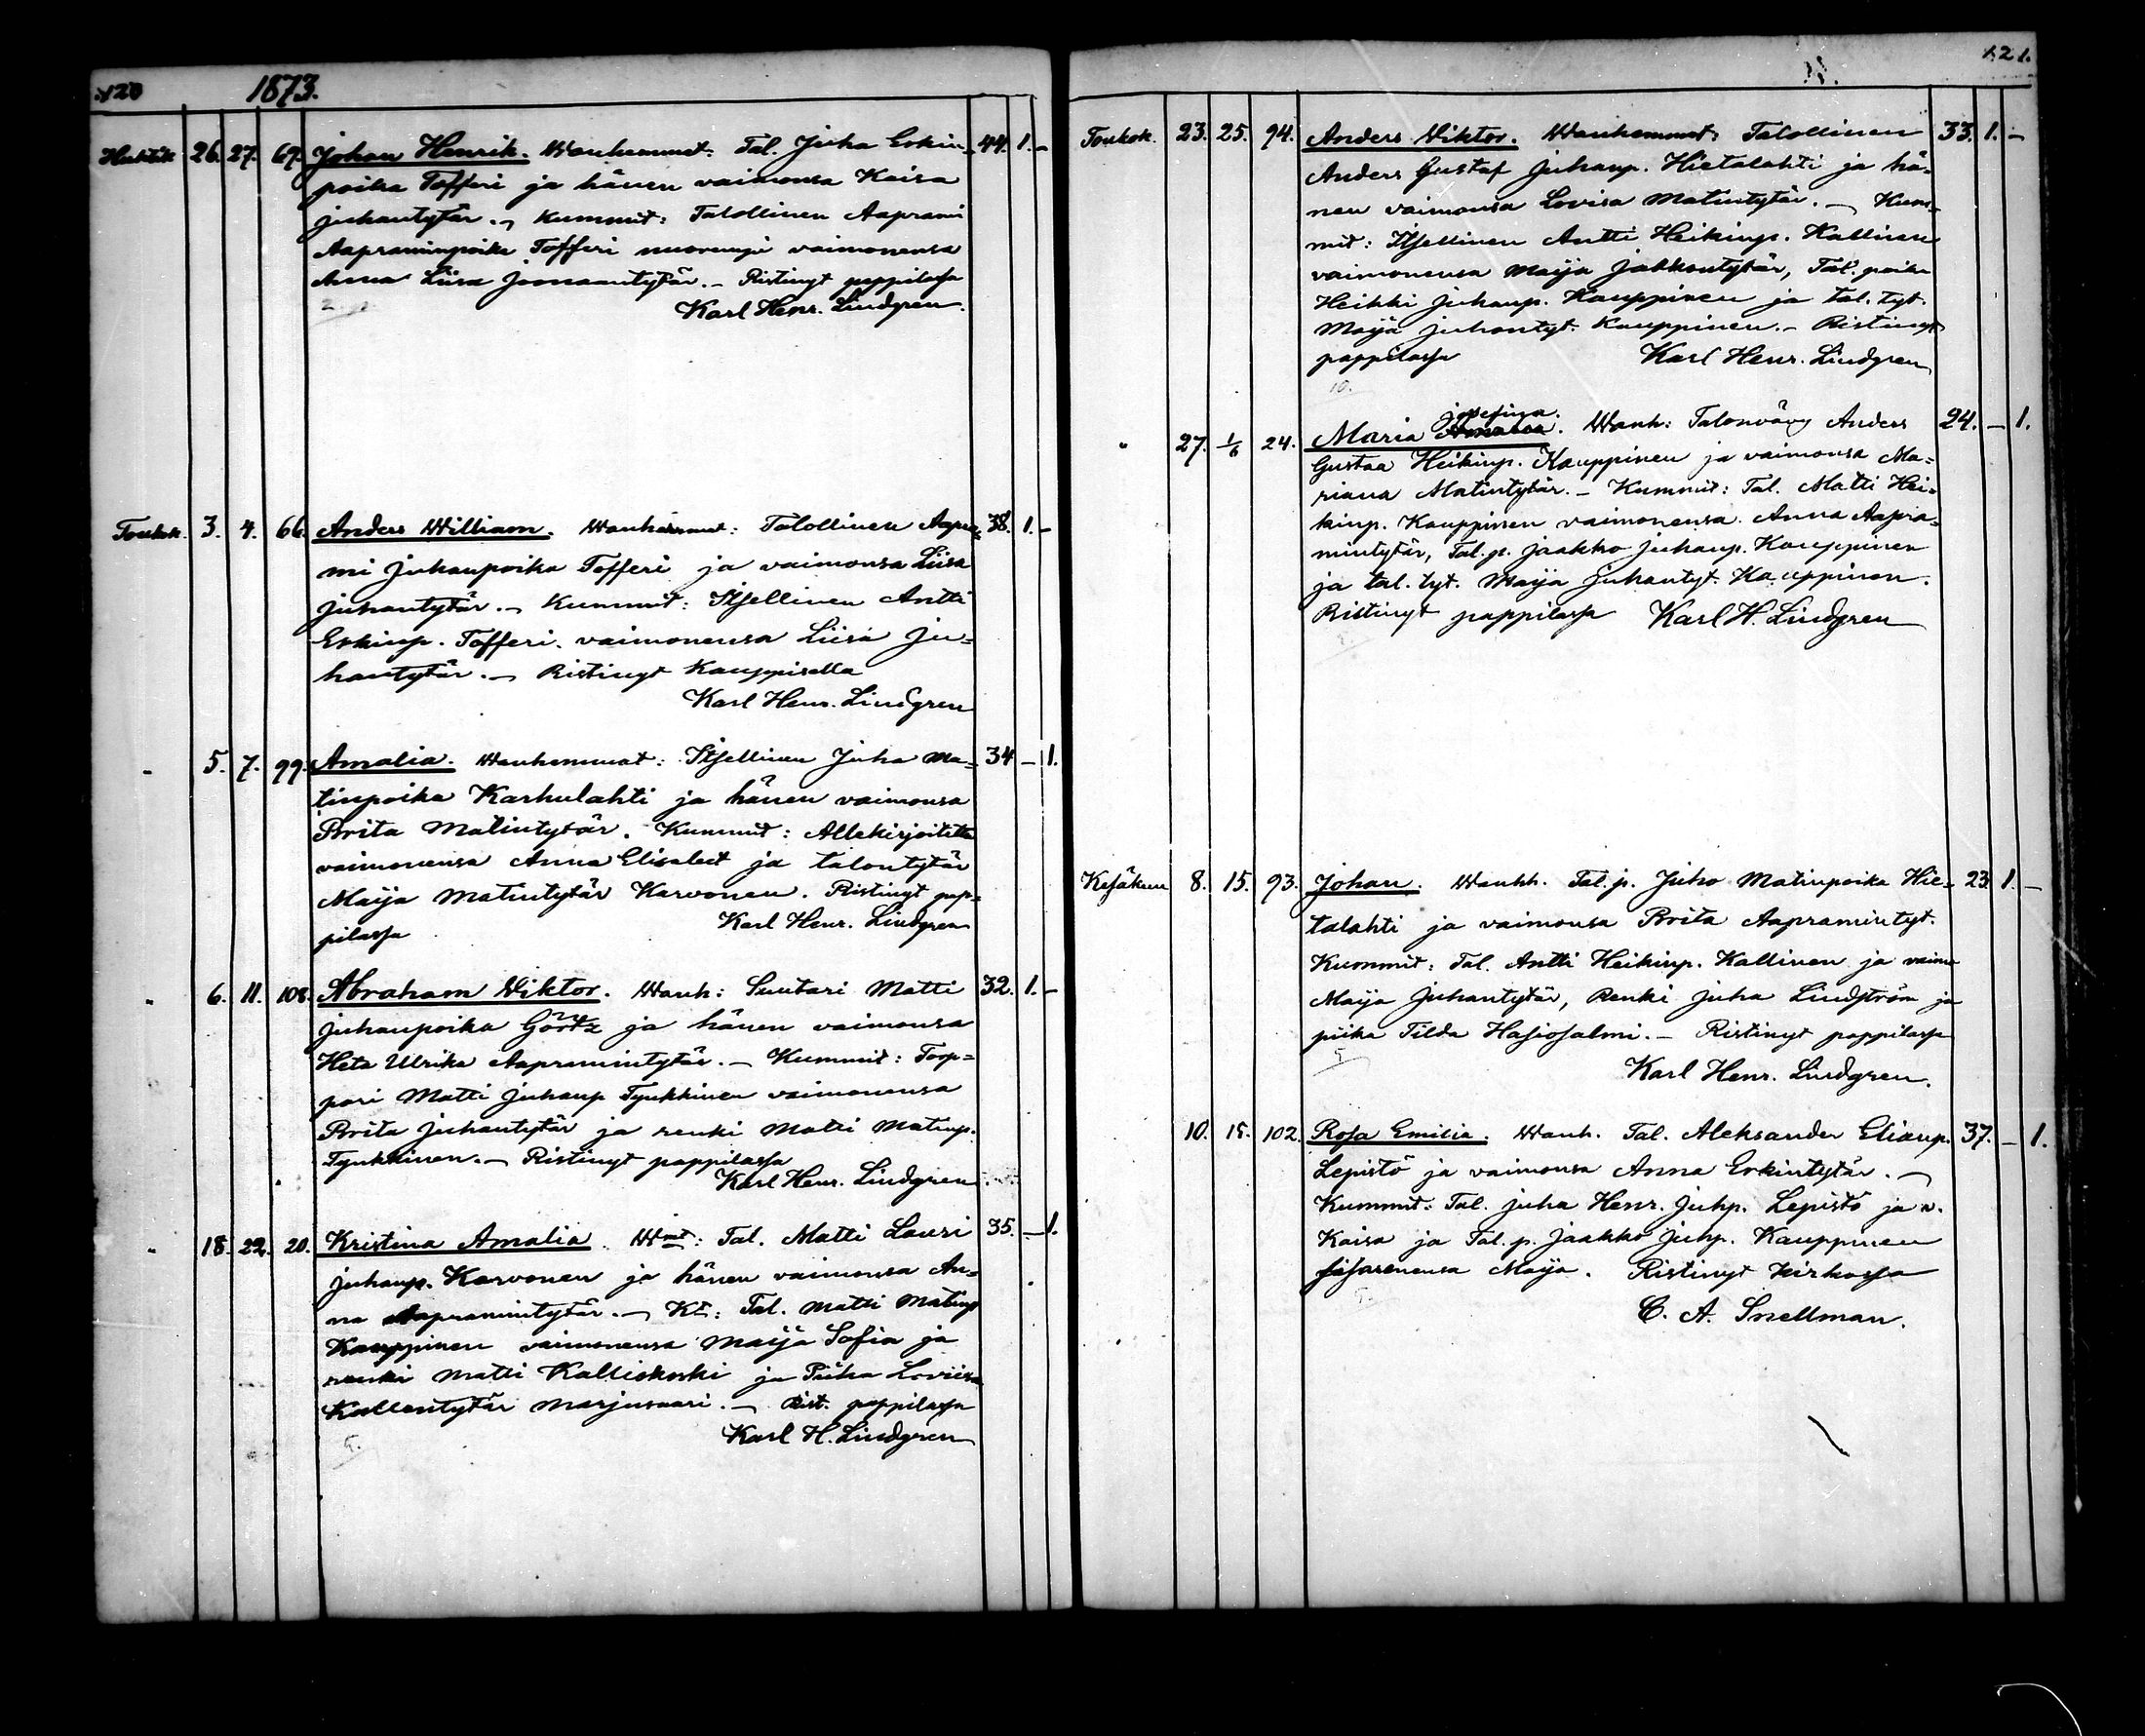 120 1873.
Huhtik. 26. 27. 67. Johan Henrik. Wanhemmat: Tal. Juha Erkin- 44. 1. –
poika Tofferi ja hänen vaimonsa Kaisa
Juhantytär. – Kummit: Talollinen Aaprami
Aapraminpoika Tofferi nuorempi vaimonensa
Anna Liisa Joonaantytär. – Ristinyt pappilassa
Karl Henr. Lindgren.
Toukok. 3. 4. 66. Anders William. Wanhemmat: Talollinen Aapra- 38. 1. –
mi Juhanpoika Tofferi ja vaimonsa Liisa
Juhantytär. – Kummit: Itsellinen Antti
Erkinp. Tofferi vaimonensa Liisa Ju=
hantytär. – Ristinyt Kauppisella
Karl Henr. Lindgren
" 5. 7. 99. Amalia. Wanhemmat: Itsellinen Juha Ma= 34 – 1.
tinpoika Karhulahti ja hänen vaimonsa
Brita Matintytär. Kummit: Allekirjoitettu
vaimonensa Anna Elisabet ja talontytär
Maija Matintytär Karvonen. Ristinyt pap=
pilassa Karl Henr. Lindgren
" 6. 11. 108. Abraham Wiktor. Wanh: Suutari Matti 32. 1. –
Juhanpoika Görtz ja hänen vaimonsa
Heta Ulrika Aapramintytär. – Kummit: Torp=
pari Matti Juhanp Tynkkinen vaimonensa
Brita Juhantytär ja renki Matti Matinp.
Tynkkinen. – Ristinyt pappilassa
Karl Henr. Lindgren
" 18. 22. 20. Kristina Amalia. Wmt: Tal. Matti Lauri 35. – 1.
Juhanp. Karvonen ja hänen vaimonsa An=
na Aapramintytär. – Kt: Tal. Matti Matinp
Kauppinen vaimonensa Maija Sofia ja
renki Matti Kalliokoski ja Piika Loviisa
Kallentytär Marjusaari. – Rist. pappilassa
Karl H. Lindgren
121.
Toukok. 23. 25. 94. Anders Viktor. Wanhemmat: Talollinen 33. 1. –
Anders Gustaf Juhanp. Hietalahti ja hä=
nen vaimonsa Lovisa Matintytär. – Kum=
mit: Itsellinen Antti Heikinp. Kallinen
vaimonensa Maija Jaakkontytär, Tal. poika
Heikki Juhanp. Kauppinen ja tal. tyt.
Maija Juhantyt. Kauppinen. – Ristinyt
pappilassa Karl Henr. Lindgren
10.
Josefina.
" 27. 1/6 24. Maria Amalia. Wanh: Talonvävy Anders 24. – 1.
Gustaa Heikinp. Kauppinen ja vaimonsa Ma=
riana Matintytär. – Kummit: Tal. Matti Hei=
kinp. Kauppinen vaimonensa Anna Aapra=
mintytär, Tal. p. Jaakko Juhanp. Kauppinen
ja tal. tyt. Maija Juhantyt. Kauppinen.
Ristinyt pappilassa Karl H. Lindgren
Kesäkuu 8. 15. 93. Johan. Wanhh. Tal. p. Juho Matinpoika Hie= 23. 1. –
talahti ja vaimonsa Brita Aapramintyt.
Kummit: Tal. Antti Heikinp. Kallinen ja vaimo
Maija Juhantytär, Renki Juha Lindström ja
piika Tilda Hasiosalmi. – Ristinyt pappilassa
5.
Karl Henr. Lindgren.
10. 15. 102. Rosa Emilia. Wanh. Tal. Aleksander Elianp. 37. – 1.
Lepistö ja vaimonsa Anna Erkintytär. –
Kummit: Tal. Juha Henr. Juhp. Lepistö ja v.
Kaisa ja Tal. p. Jaakko Juhp. Kauppinen
sisarenensa Maija. Ristinyt kirkossa
C. A. Snellman.